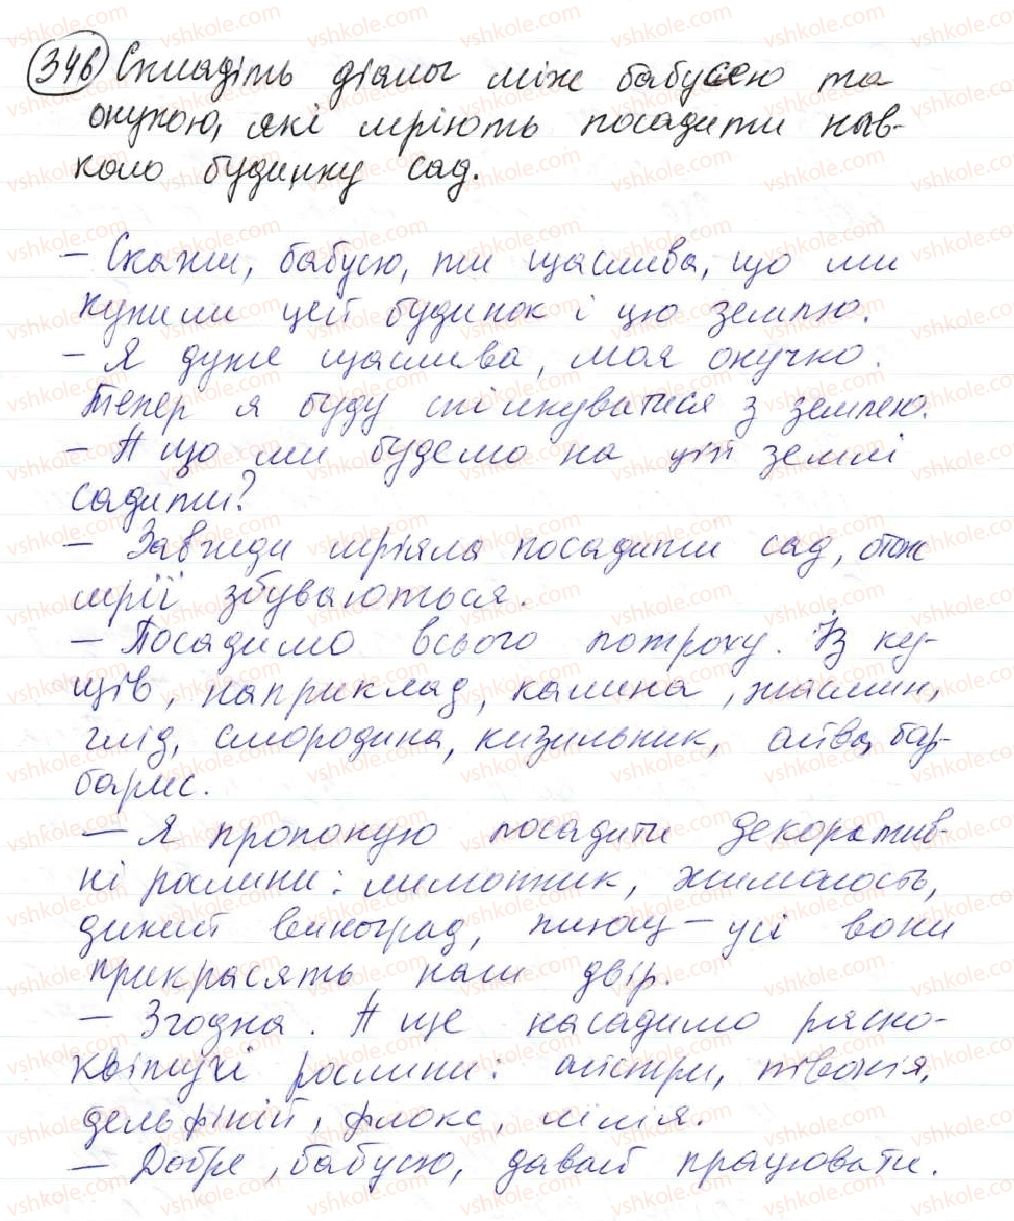 346 Складіть діалог між бабусею та
онукою, які мріють посадити нав-
коло будинку сад.
– Скажи, бабусю, ти щаслива, що ми
купили цей будинок і цю землю.
– Я дуже щаслива, моя онучко.
Тепер я буду спілкуватися з землею.
– А що ми будемо на цій землі
садити?
– Завжди мріяла посадити сад, отож
мрії збуваються.
– Посадимо всього потроху. Із ку-
щів, наприклад, калина, жасмин,
глід, смородина, кизильник, айва, бар-
барис.
– Я пропоную посадити декоратив-
ні рослини: лимонник, жималость,
дикий виноград, плющ – усі вони
прикрасять наш двір.
– Згодна. А ще насадимо рясно-
квітучі рослини: айстри, півонія,
дельфіній, флокс, лілія.
– Добре, бабусю, давай працювати.
vshkole.com